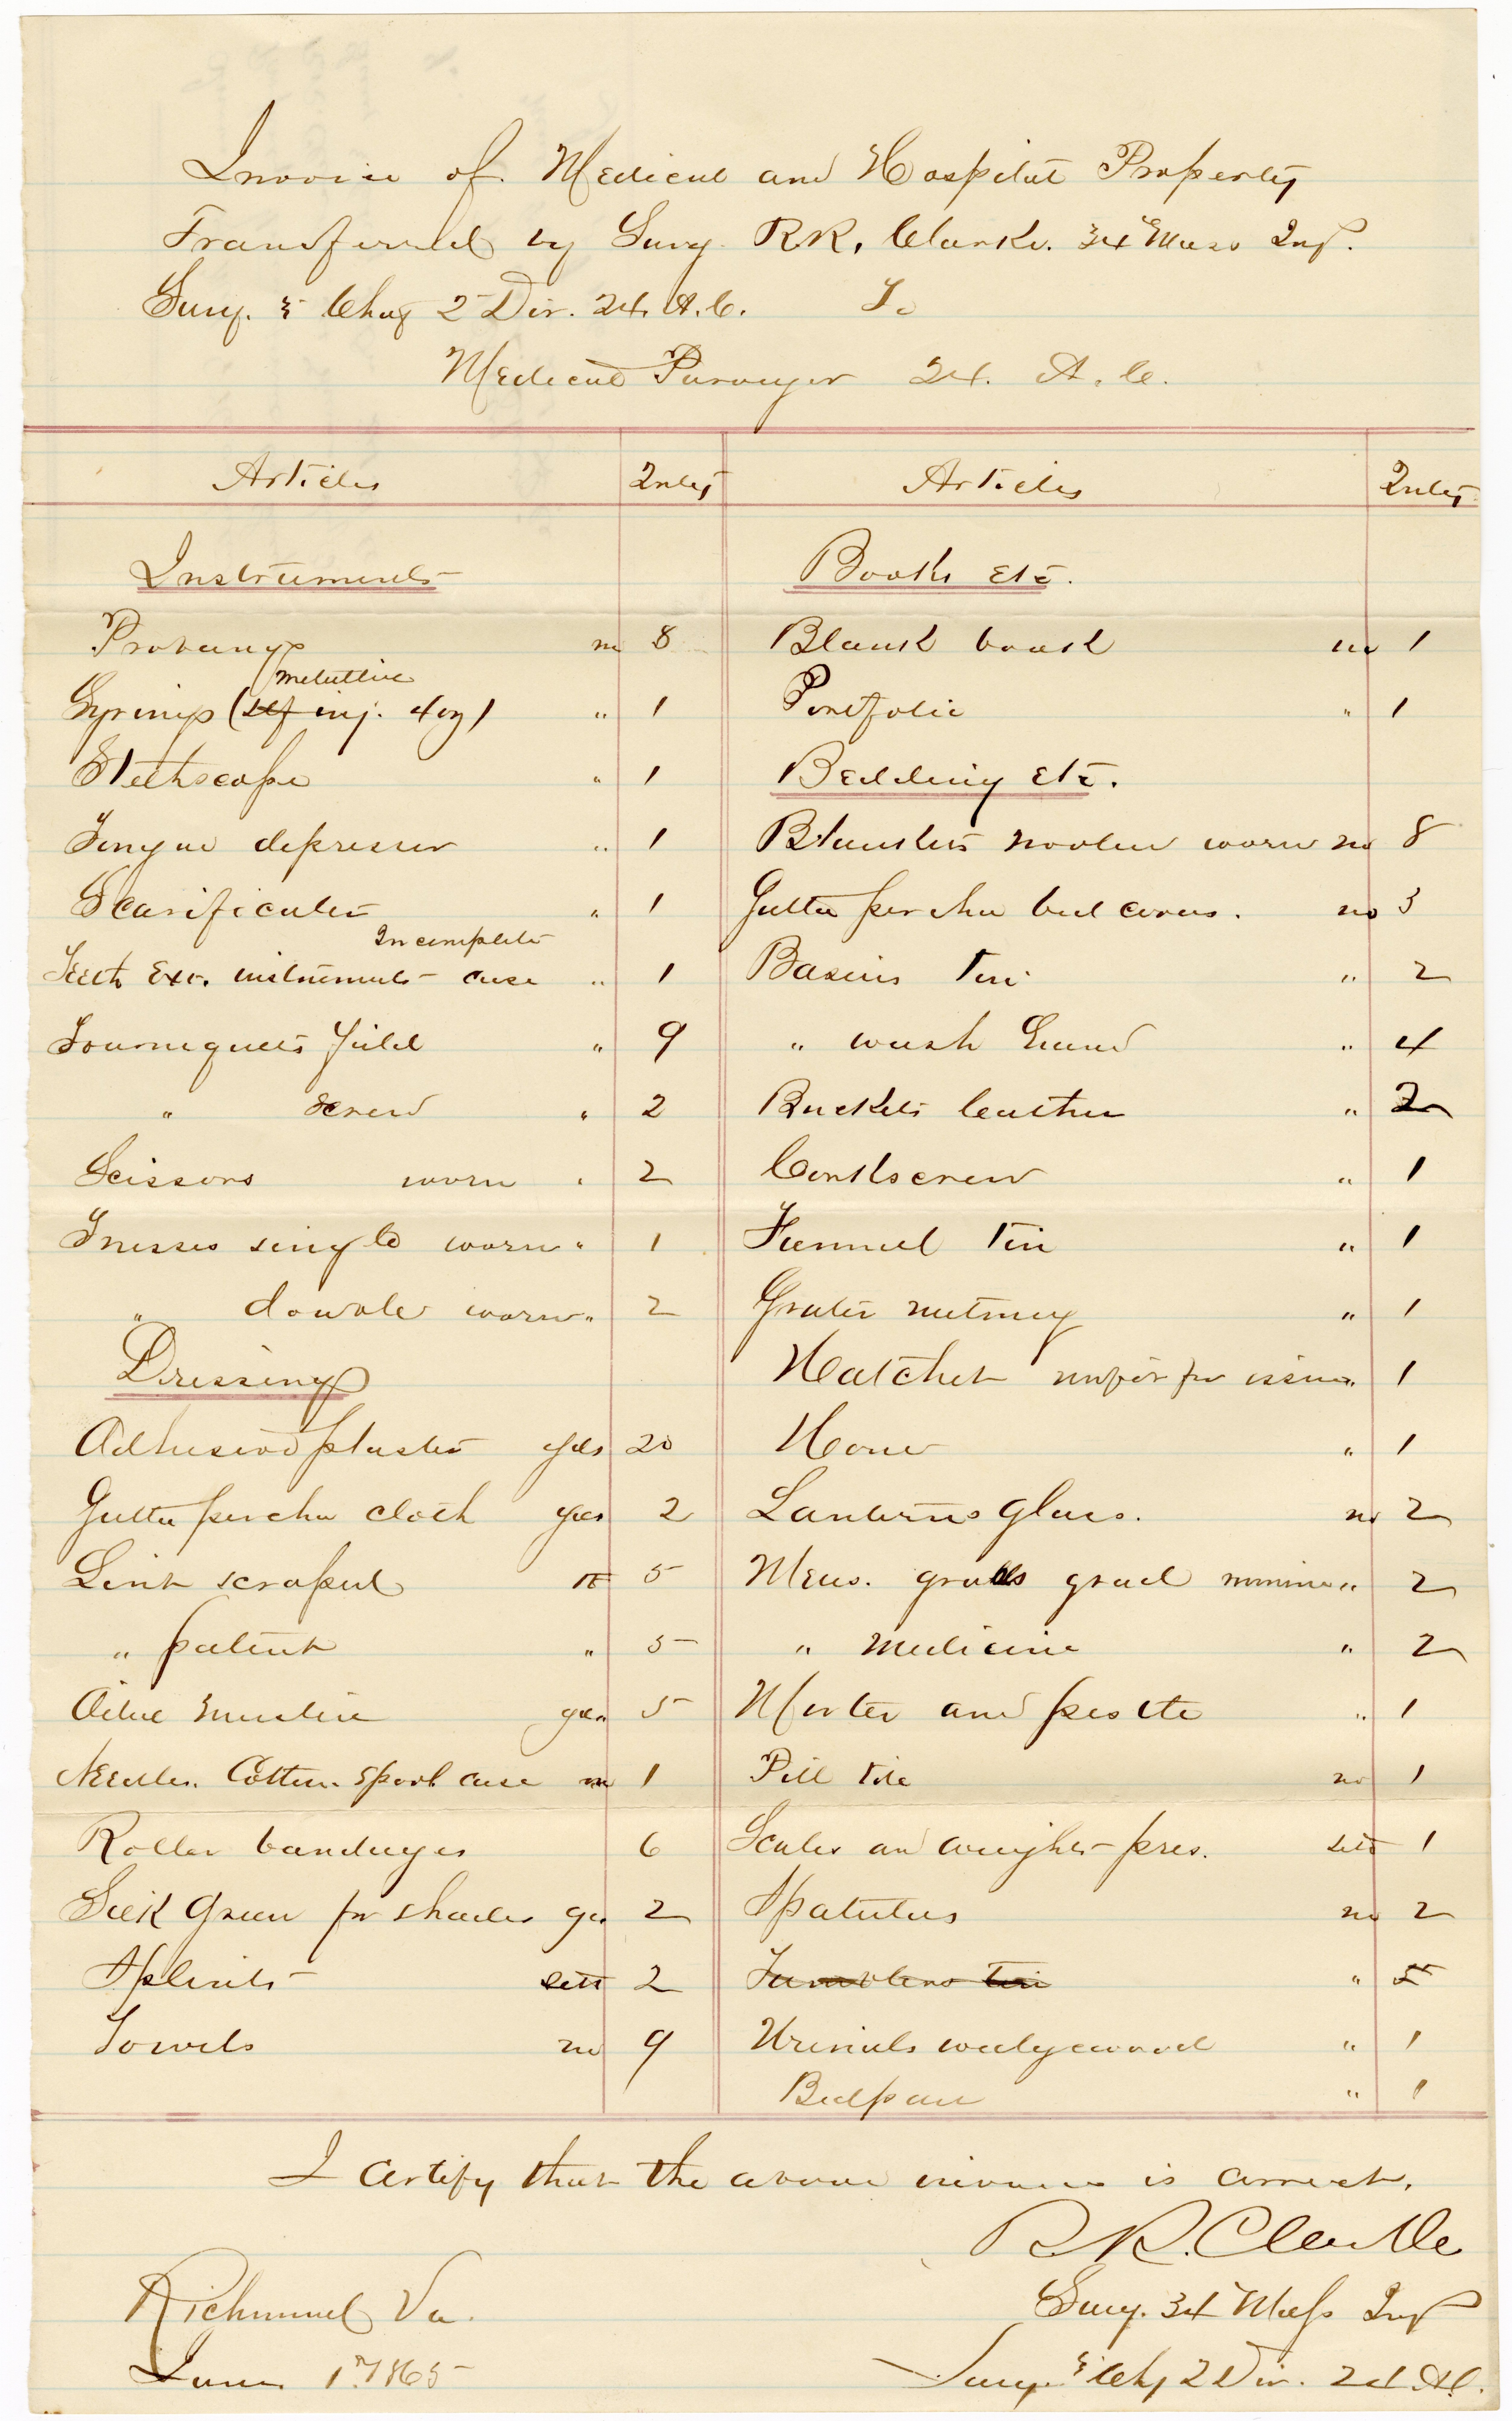 Invoice of Medical and Hospital Property
Transferred by Surg. R.R. Clarke. 34 Mass Inf.
Surg. & Chg 2 Div. 24. A.C. To
Medical Purveyor 24. A.C.
Articles Quty
Instruments
Probangs no 8
metallic
Syrings (self inj. 4 oz) " 1
Stethscope " 1
Tongue depressor " 1
Scarificator " 1
Incomplete
Teeth Exc. instruments case " 1
Tourniquets field " 9
" screw " 2
Scissors worn " 2
Trusses single worn " 1
" double worn " 2
Dressing
Adhesive plaster yds 20
Gutta percha cloth yds 2
Lint scraped lb 5
" patent " 5
Oiled muslin yds 5
Needles. Cotton. Spool case no 1
Roller bandages 6
Silk Green for shades yd 2
Splints sett 2
Towels no 9
Articles Quty
Books Etc.
Blank book no 1
Portfolio " 1
Bedding Etc.
Blankets woolen worn no 8
Gutta percha bed covers. no 3
Basins tin " 2
" wash hand " 4
Buckets leather " 2
Corkscrew " 1
Funnel tin " 1
Grater nutmeg " 1
Hatchet unfit for issue " 1
Hone " 1
Lanterns glass. no 2
Meas. grad minim " 2
" medicine " 2
Morter and pestle " 1
Pill tile no 1
Scales and weights pres. sett 1
Spatulas no 2
Tumblers tin " 5
Urinals wedgewood " 1
Bedpan " 1
I certify that the above invoice is correct.
R.R. Clarke
Surg. 34 Mass Inf
Surg & Chg 2 Div. 24 A.C.
Richmond Va.
June 1st 1865